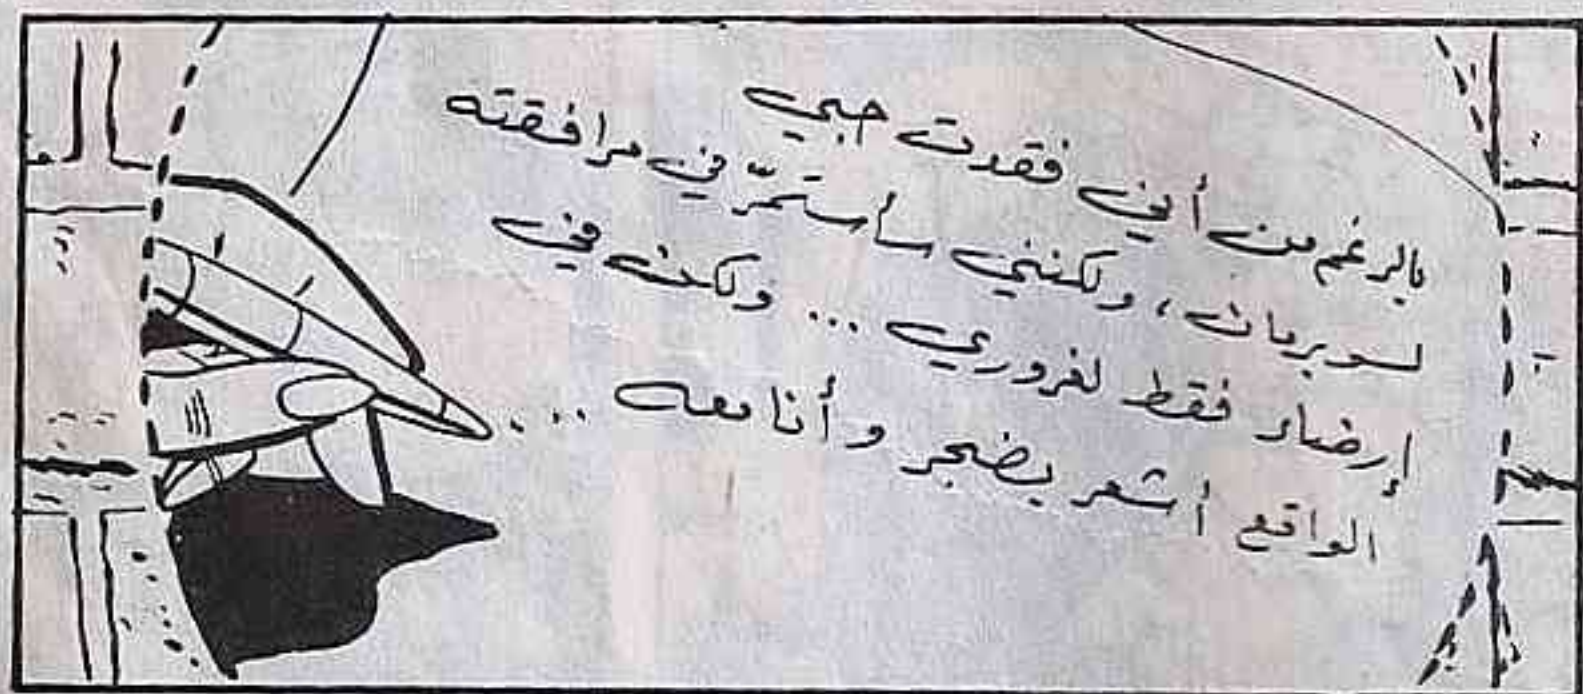 بالرغم من أني فقدت حبي
لسوبرمان، ولكنني سأستمرّ في مرافقته
إرضاء فقط لغروري ... ولكن في
الواقع أشعر بضجر وأنا معه ....